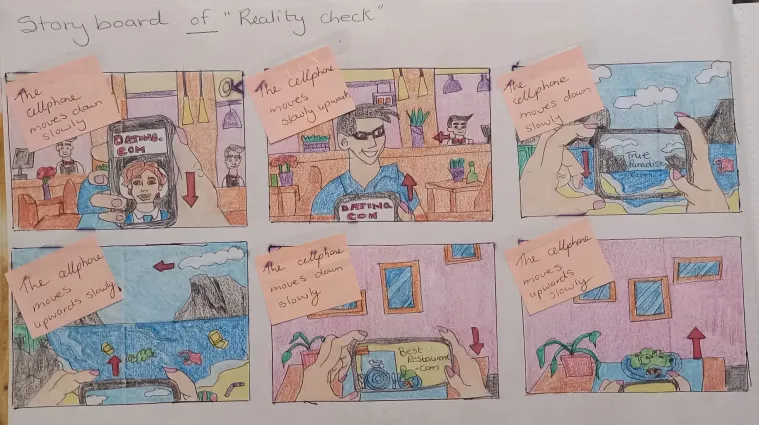 Story board of "Reality check"
The
cellphone
moves down
slowly
DATING.
COM
The cellphone
moves
slowly upward
DATING
COM
The
cellphone
moves down
slowly
True
Paradise
.com
The cellphone
moves
upwards slowly
The cellphone
moves down
slowly
Best
Restaurant
.com
The cellphone
moves
upwards
slowly